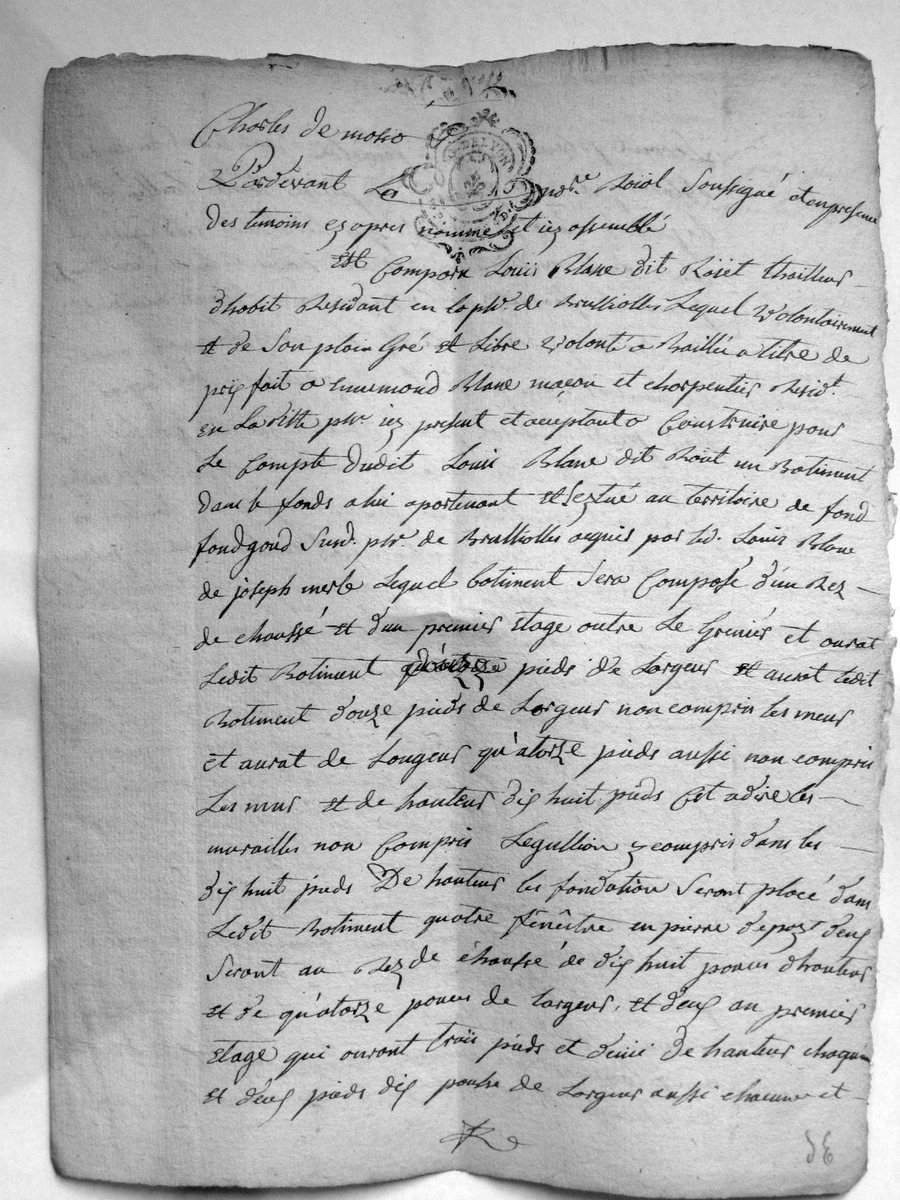 Charles de
DE LYON
Pardevant Le notre Roïal Soussigné et en presence
des temoins ezapres nommé et iez assemblé
Est Comparu Louis Blanc dit Roïet thailleur
dhabit Residant en la psse de Brulliolles Lequel Volontairement
et de Son plain Gré et Libre Volonté a Baillé a titre de
prix fait a ennemond Blanc maçon et charpentier Residt
en La ditte psse iez present et acceptant a Construire pour
Le Compte dudit Louis Blanc dit Roiet un Batiment
dans le fonds a lui apartenant et Seztué au territoire de fond
fondgond Susd. psse de Brulliolles acquis par led. Louis Blanc
de joseph merle Lequel batiment Sera Composé d'un Rez
de chaussé et d'un premier Etage outre Le Grenier et aurat
Ledit Batiment pieds de Largeur et aurat ledit
Batiment d'ouze pieds de Largeur non compris les meur
et aurat de Longeur qu'atorze pieds aussi non compris
Les mur et de hauteur dix huit pieds Cet adire les
murailles non Compris Legullion y compris dans les
dix huit pieds De hauteur les fondation Seront placé dans
Ledit Batiment quatre fenêttre en pierre deux
Seront au Rez de chaussé de dix huit pouces dhauteur
et de qu'atorze pouces de largeur, et deux au premier
Etage qui auront trois pieds et demi de hauteur chaqune
et deux pieds dix pouhe de Largeur aussi chacune et